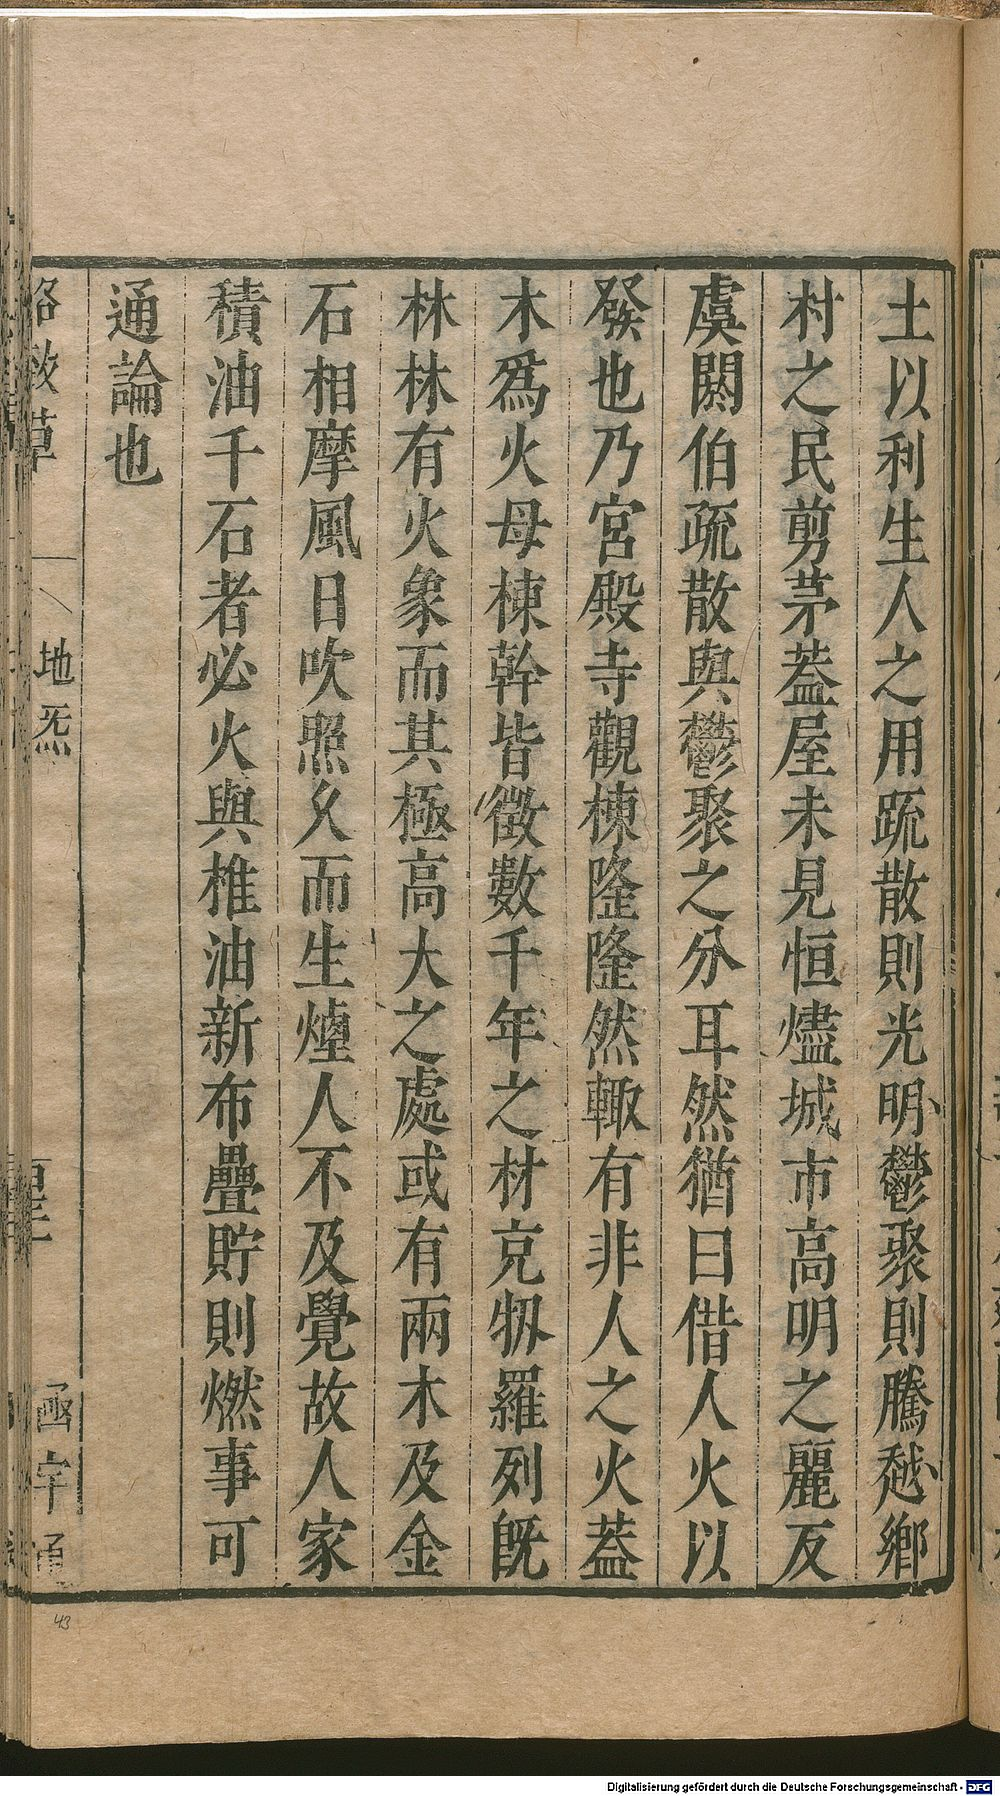 土以利生人之用疏散則光明鬱聚則騰越鄉
村之民剪茅蓋屋未見恒燼城市高明之麗反
虞閼伯疏散與鬱聚之分耳然猶曰偕人火以
發也乃宮殿寺觀棟隆隆然輙有非人之火蓋
木爲火母棟幹皆徵數千年之材充牣羅列旣
林林有火象而其極高大之處或有兩木及金
石相摩風日吹照久而生煙人不及覺故人家
積油千石者必火與椎油新布疊貯則燃事可
通論也
格致草
地炁
函宇通
43
Digitalisierung gefördert durch die Deutsche Forschungsgemeinschaft - DFG